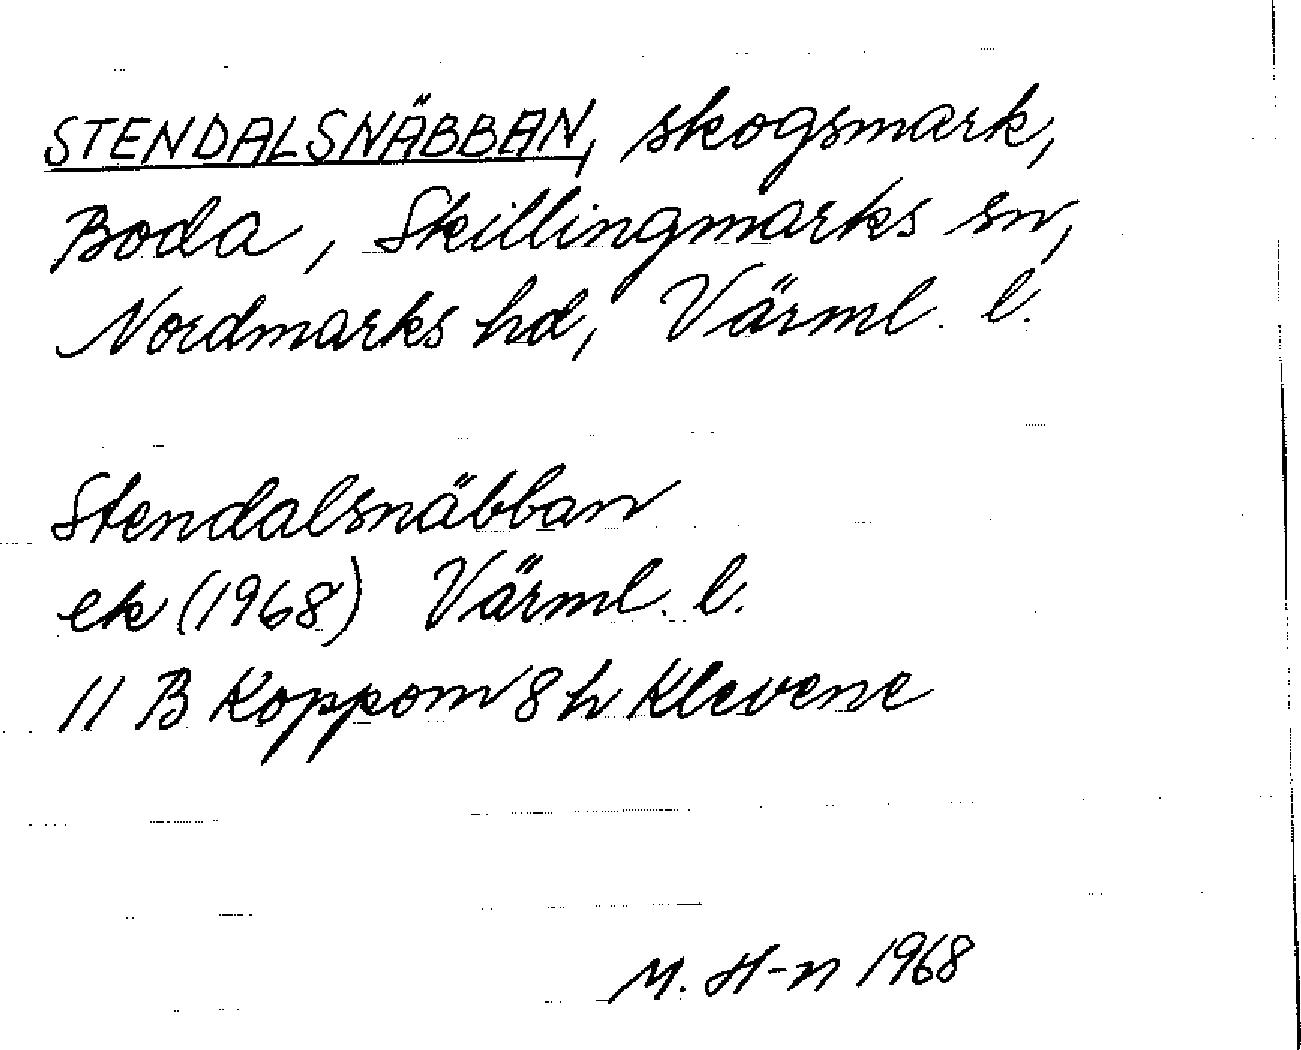 STENDALSNÄBBAN, skogsmark,
Boda, Skillingmarks sn,
Nordmarks hd, Värml. l.
Stendalsnäbban
ek (1968) Värml. l.
11 B Koppom 8 h Klevene
M. H-n 1968